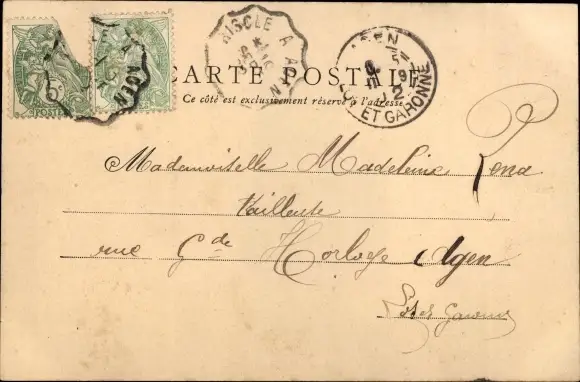 RISCLE A AGEN
AGEN
LOT ET GARONNE
CARTE POSTALE
Ce côté est exclusivement réservé à l'adresse
Mademoiselle Madeleine Pena
tailleuse
rue Gde Horloge Agen
Lot et Garonne